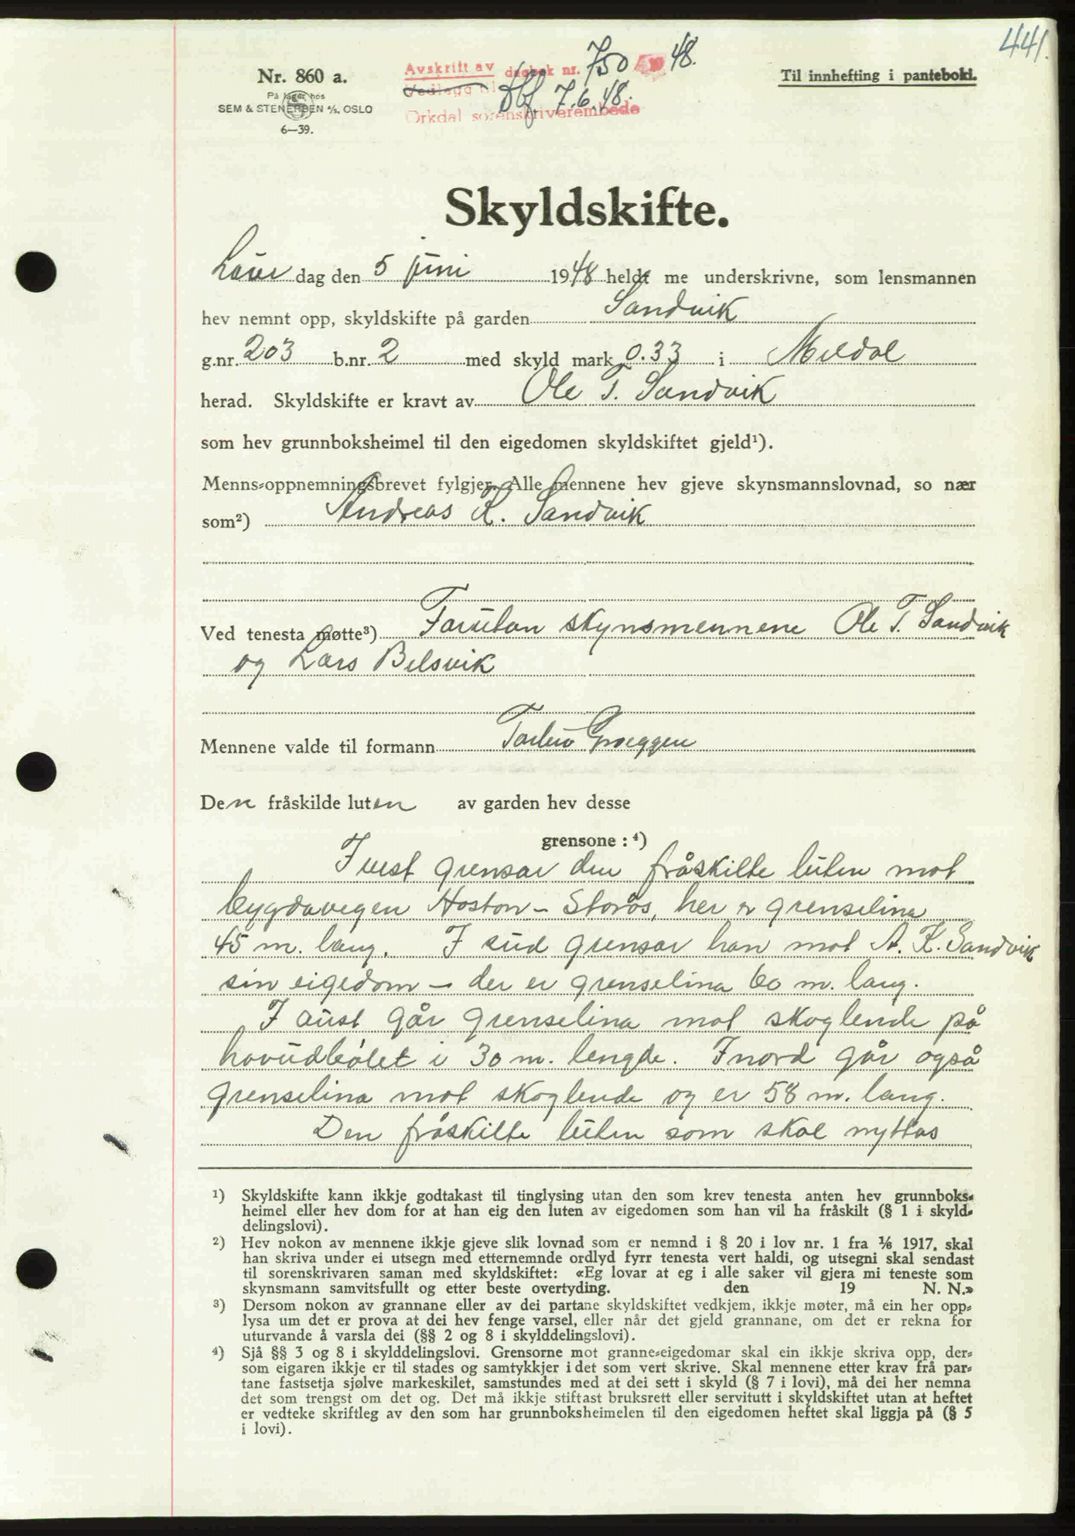 441.
Nr. 860 a.
På lager hos
SEM & STENERSEN A/S, OSLO
6—39.
Avskrift av dagbok nr. 750 19 48.
Vedlegg til
7.6.48.
Orkdal sorenskriverembede
Til innhefting i pantebok.
Skyldskifte.
Laur dag den 5 juni 1948 heldt me underskrivne, som lensmannen
hev nemnt opp, skyldskifte på garden Sandvik
g.nr. 203 b.nr. 2 med skyld mark 0.33 i Meldal
herad. Skyldskifte er kravt av Ole T. Sandvik
som hev grunnboksheimel til den eigedomen skyldskiftet gjeld¹).
Menns-oppnemningsbrevet fylgjer. Alle mennene hev gjeve skynsmannslovnad, so nær
som²) Andreas K. Sandvik
Ved tenesta møtte³) Forutan skynsmennene Ole T. Sandvik
og Lars Belsvik
Mennene valde til formann
Den fråskilde luten av garden hev desse
grensone : ⁴)
I vest grensar den fråskilte luten mot
bygdavegen Hoston – Storås, her er grenselina
45 m. lang. I sud grensar han mot A. K. Sandvik
sin eigedom – der er grenselina 60 m. lang.
I aust går grenselina mot skoglende på
hovudbølet i 30 m. lengde. I nord går også
grenselina mot skoglende og er 58 m. lang.
Den fråskilte luten som skal nyttas
¹) Skyldskifte kann ikkje godtakast til tinglysing utan den som krev tenesta anten hev grunnboks-
heimel eller hev dom for at han eig den luten av eigedomen som han vil ha fråskilt (§ 1 i skyld-
delingslovi).
²) Hev nokon av mennene ikkje gjeve slik lovnad som er nemnd i § 20 i lov nr. 1 fra 1/6 1917, skal
han skriva under ei utsegn med etternemnde ordlyd fyrr tenesta vert haldi, og utsegni skal sendast
til sorenskrivaren saman med skyldskiftet: «Eg lovar at eg i alle saker vil gjera mi teneste som
skynsmann samvitsfullt og etter beste overtyding. den 19 N. N.»
³) Dersom nokon av grannane eller av dei partane skyldskiftet vedkjem, ikkje møter, må ein her opp-
lysa um det er prova at dei hev fenge varsel, eller når det gjeld grannane, om det er rekna for
uturvande å varsla dei (§§ 2 og 8 i skylddelingslovi).
⁴) Sjå §§ 3 og 8 i skylddelingslovi. Grensorne mot granne-eigedomar skal ein ikkje skriva opp, der-
som eigaren ikkje er til stades og samtykkjer i det som vert skrive. Skal mennene etter krav frå par-
tane fastsetja sjølve markeskilet, samstundes med at dei sett i skyld (§ 7 i lovi), må dei her nemna
det som trengst om det og. Det må ikkje stiftast bruksrett eller servitutt i skyldskiftet utan at heftet
er vedteke skriftleg av den som har grunnboksheimelen til den eigedomen heftet skal liggja på (§ 5
i lovi).